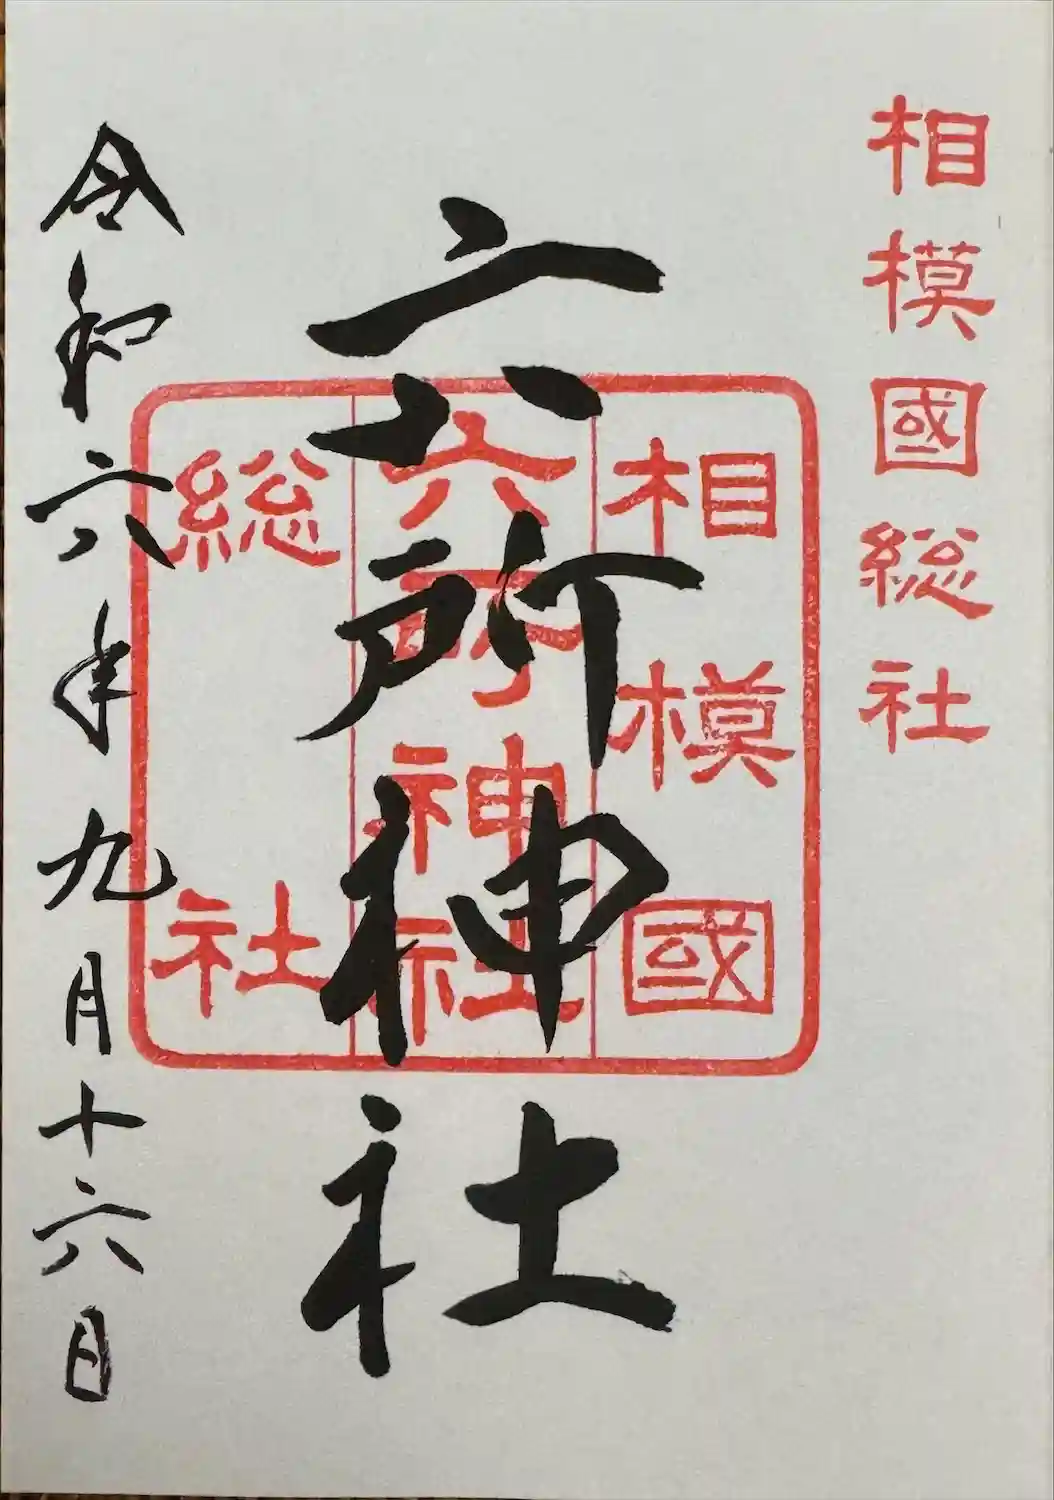 相模國総社
六所神社
相模國
六所神社
総社
令和六年九月十六日